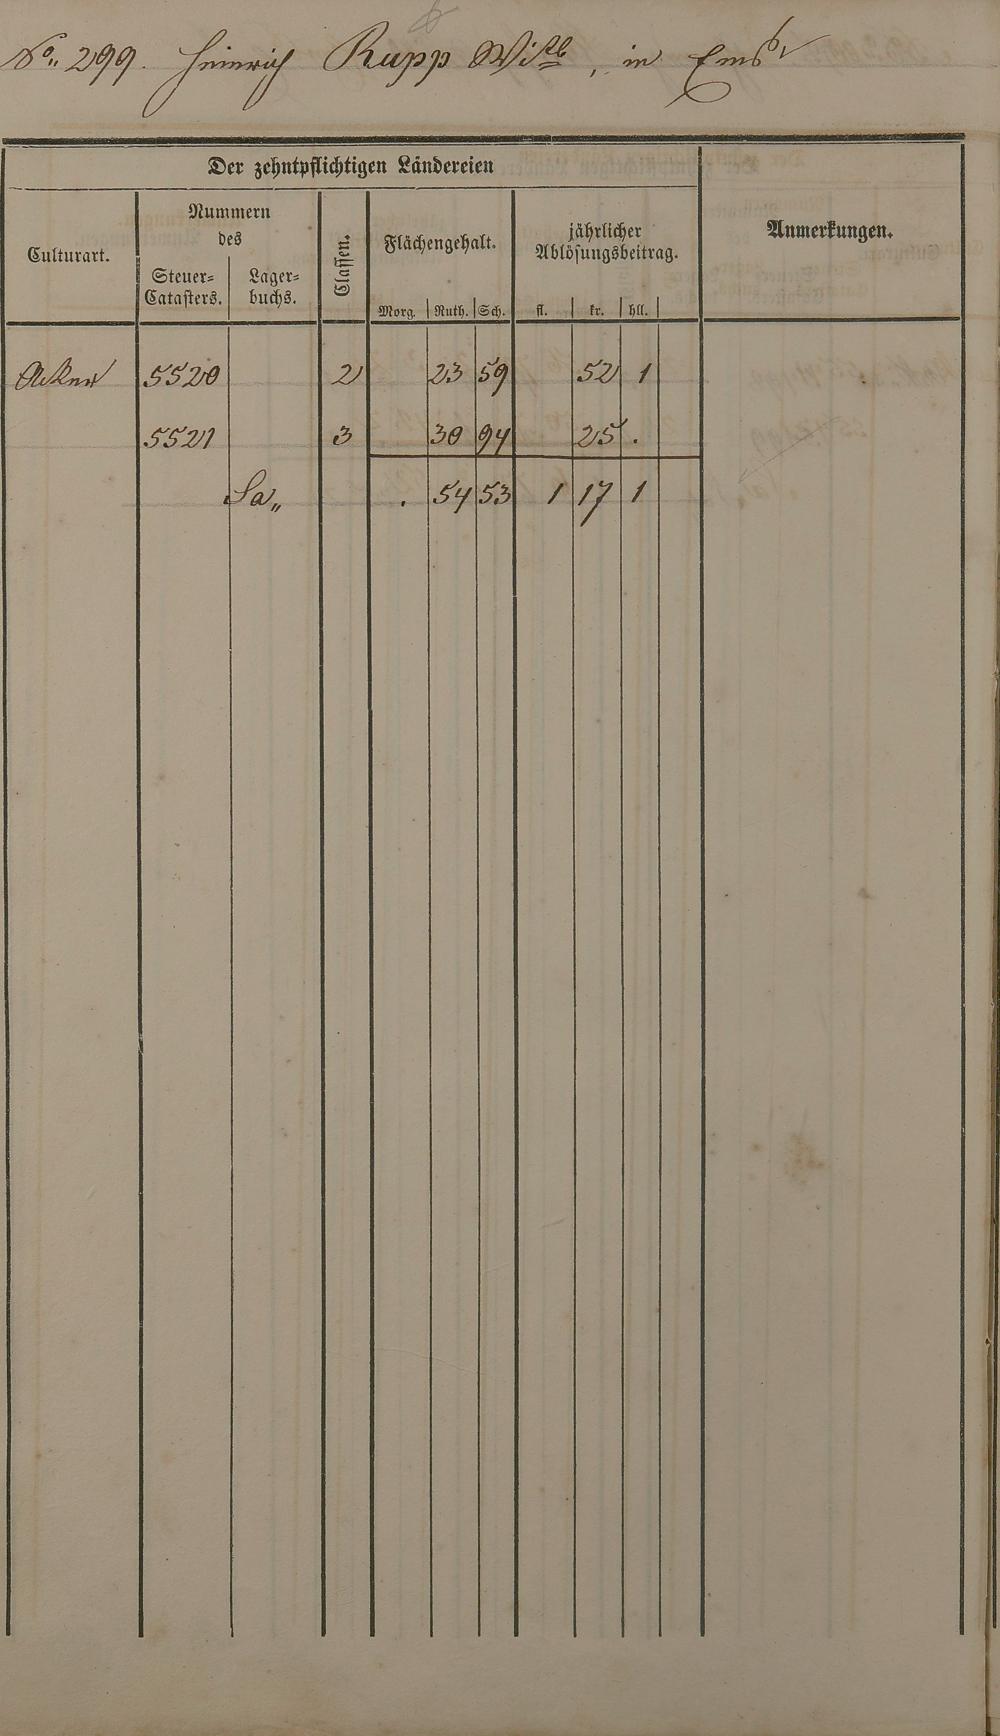 No. 299. Heinrich Rupp Witb, in Ems
Der zehntpflichtigen Ländereien
Culturart.
Nummern
des
Steuer-
Catasters.
Lager-
buchs.
Classen.
Flächengehalt.
Morg. Ruth. Sch.
jährlicher
Ablösungsbeitrag.
fl. kr. hll.
Anmerkungen.
Acker 5520 2 23 59 52 1
5521 3 30 94 25 .
Sa„ . 54 53 1 17 1